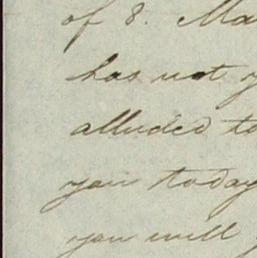 of 8. Ma
has not y
alluded to
you today
you will